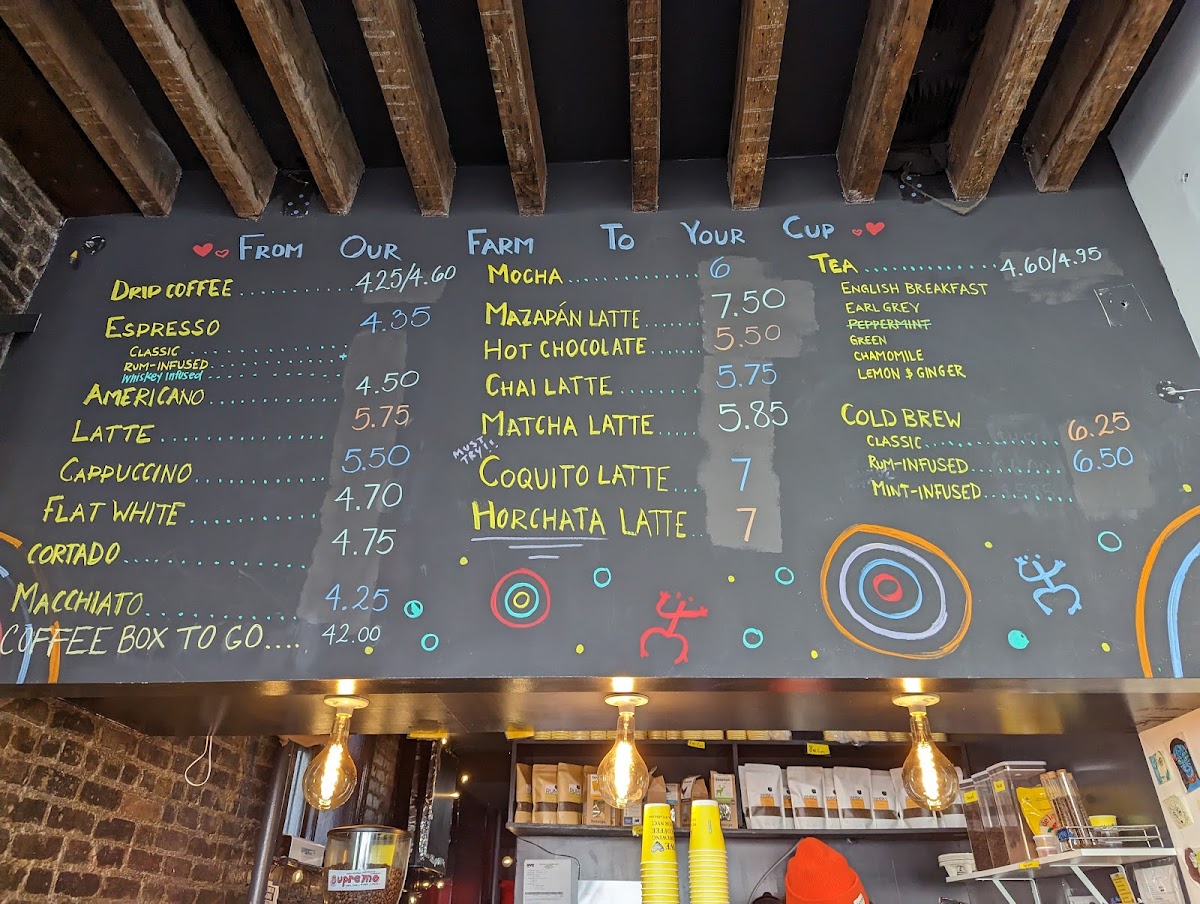 From Our Farm To Your Cup
DRIP COFFEE.......... 4.25/4.60
ESPRESSO 4.35
CLASSIC
RUM-INFUSED
Whiskey Infused
AMERICANO 4.50
LATTE 5.75
CAPPUCCINO 5.50
FLAT WHITE 4.70
CORTADO 4.75
MACCHIATO 4.25
COFFEE BOX TO GO.... 42.00
MOCHA 6
MAZAPÁN LATTE..... 7.50
HOT CHOCOLATE..... 5.50
CHAI LATTE 5.75
MATCHA LATTE 5.85
MUST TRY!!
COQUITO LATTE... 7
HORCHATA LATTE.. 7
TEA 4.60/4.95
ENGLISH BREAKFAST
EARL GREY
PEPPERMINT
GREEN
CHAMOMILE
LEMON & GINGER
COLD BREW
CLASSIC 6.25
RUM-INFUSED 6.50
MINT-INFUSED
Supremo